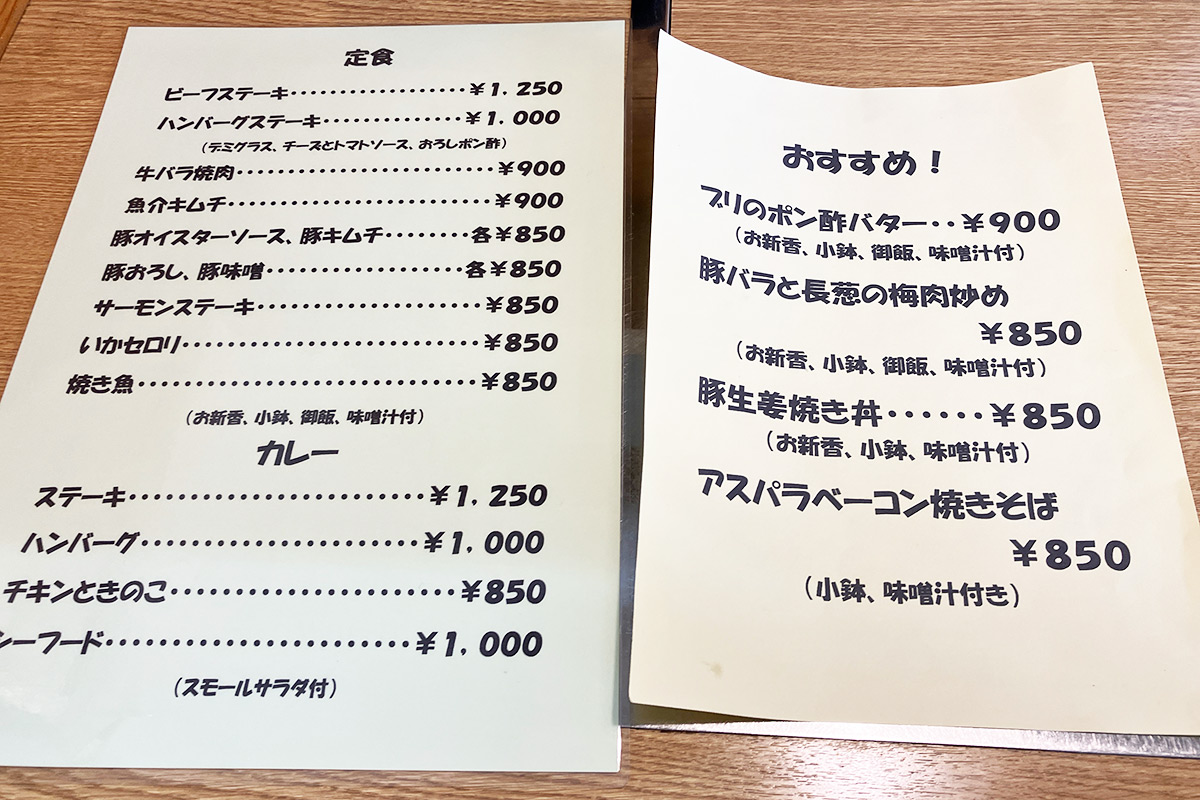 定食
ビーフステーキ・・・・・・・・・・・・・・・・・・¥1,250
ハンバーグステーキ・・・・・・・・・・・・・・¥1,000
(デミグラス、チーズとトマトソース、おろしポン酢)
牛バラ焼肉・・・・・・・・・・・・・・・・・・・・・・・・・・¥900
魚介キムチ・・・・・・・・・・・・・・・・・・・・・・・・・・¥900
豚オイスターソース、豚キムチ・・・・・・・・各¥850
豚おろし、豚味噌・・・・・・・・・・・・・・・・・・各¥850
サーモンステーキ・・・・・・・・・・・・・・・・・・・・¥850
いかセロリ・・・・・・・・・・・・・・・・・・・・・・・・・・¥850
焼き魚・・・・・・・・・・・・・・・・・・・・・・・・・・・・・・¥850
(お新香、小鉢、御飯、味噌汁付)
カレー
ステーキ・・・・・・・・・・・・・・・・・・・・・・・・・・¥1,250
ハンバーグ・・・・・・・・・・・・・・・・・・・・・・・・¥1,000
チキンときのこ・・・・・・・・・・・・・・・・・・・・・・¥850
シーフード・・・・・・・・・・・・・・・・・・・・・・・・¥1,000
(スモールサラダ付)
おすすめ!
ブリのポン酢バター・・¥900
(お新香、小鉢、御飯、味噌汁付)
豚バラと長葱の梅肉炒め
¥850
(お新香、小鉢、御飯、味噌汁付)
豚生姜焼き丼・・・・・・¥850
(お新香、小鉢、味噌汁付)
アスパラベーコン焼きそば
¥850
(小鉢、味噌汁付き)